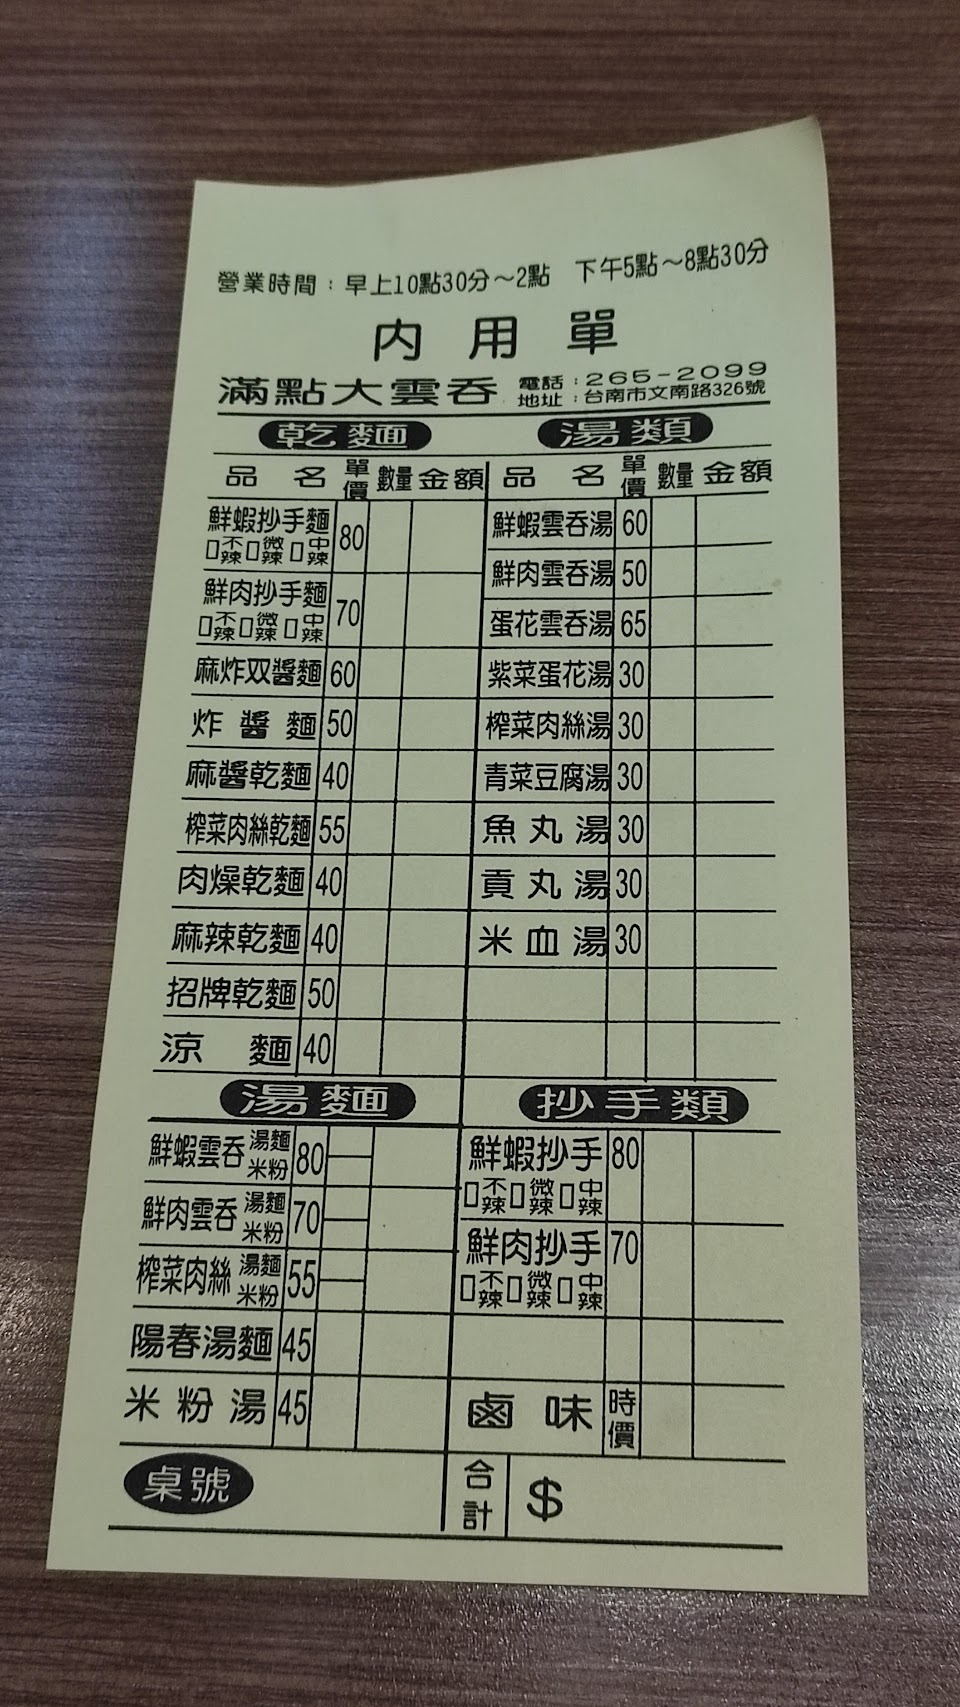 營業時間：早上10點30分～2點　下午5點～8點30分
內用單
滿點大雲吞
電話：265-2099
地址：台南市文南路326號
乾麵
品名 單價 數量 金額
鮮蝦抄手麵 80
□不辣□微辣□中辣
鮮肉抄手麵 70
□不辣□微辣□中辣
麻炸双醬麵 60
炸醬麵 50
麻醬乾麵 40
榨菜肉絲乾麵 55
肉燥乾麵 40
麻辣乾麵 40
招牌乾麵 50
涼麵 40
湯類
品名 單價 數量 金額
鮮蝦雲吞湯 60
鮮肉雲吞湯 50
蛋花雲吞湯 65
紫菜蛋花湯 30
榨菜肉絲湯 30
青菜豆腐湯 30
魚丸湯 30
貢丸湯 30
米血湯 30
湯麵
鮮蝦雲吞 湯麵 米粉 80
鮮肉雲吞 湯麵 米粉 70
榨菜肉絲 湯麵 米粉 55
陽春湯麵 45
米粉湯 45
抄手類
鮮蝦抄手 80
□不辣□微辣□中辣
鮮肉抄手 70
□不辣□微辣□中辣
鹵味 時價
桌號
合計 $